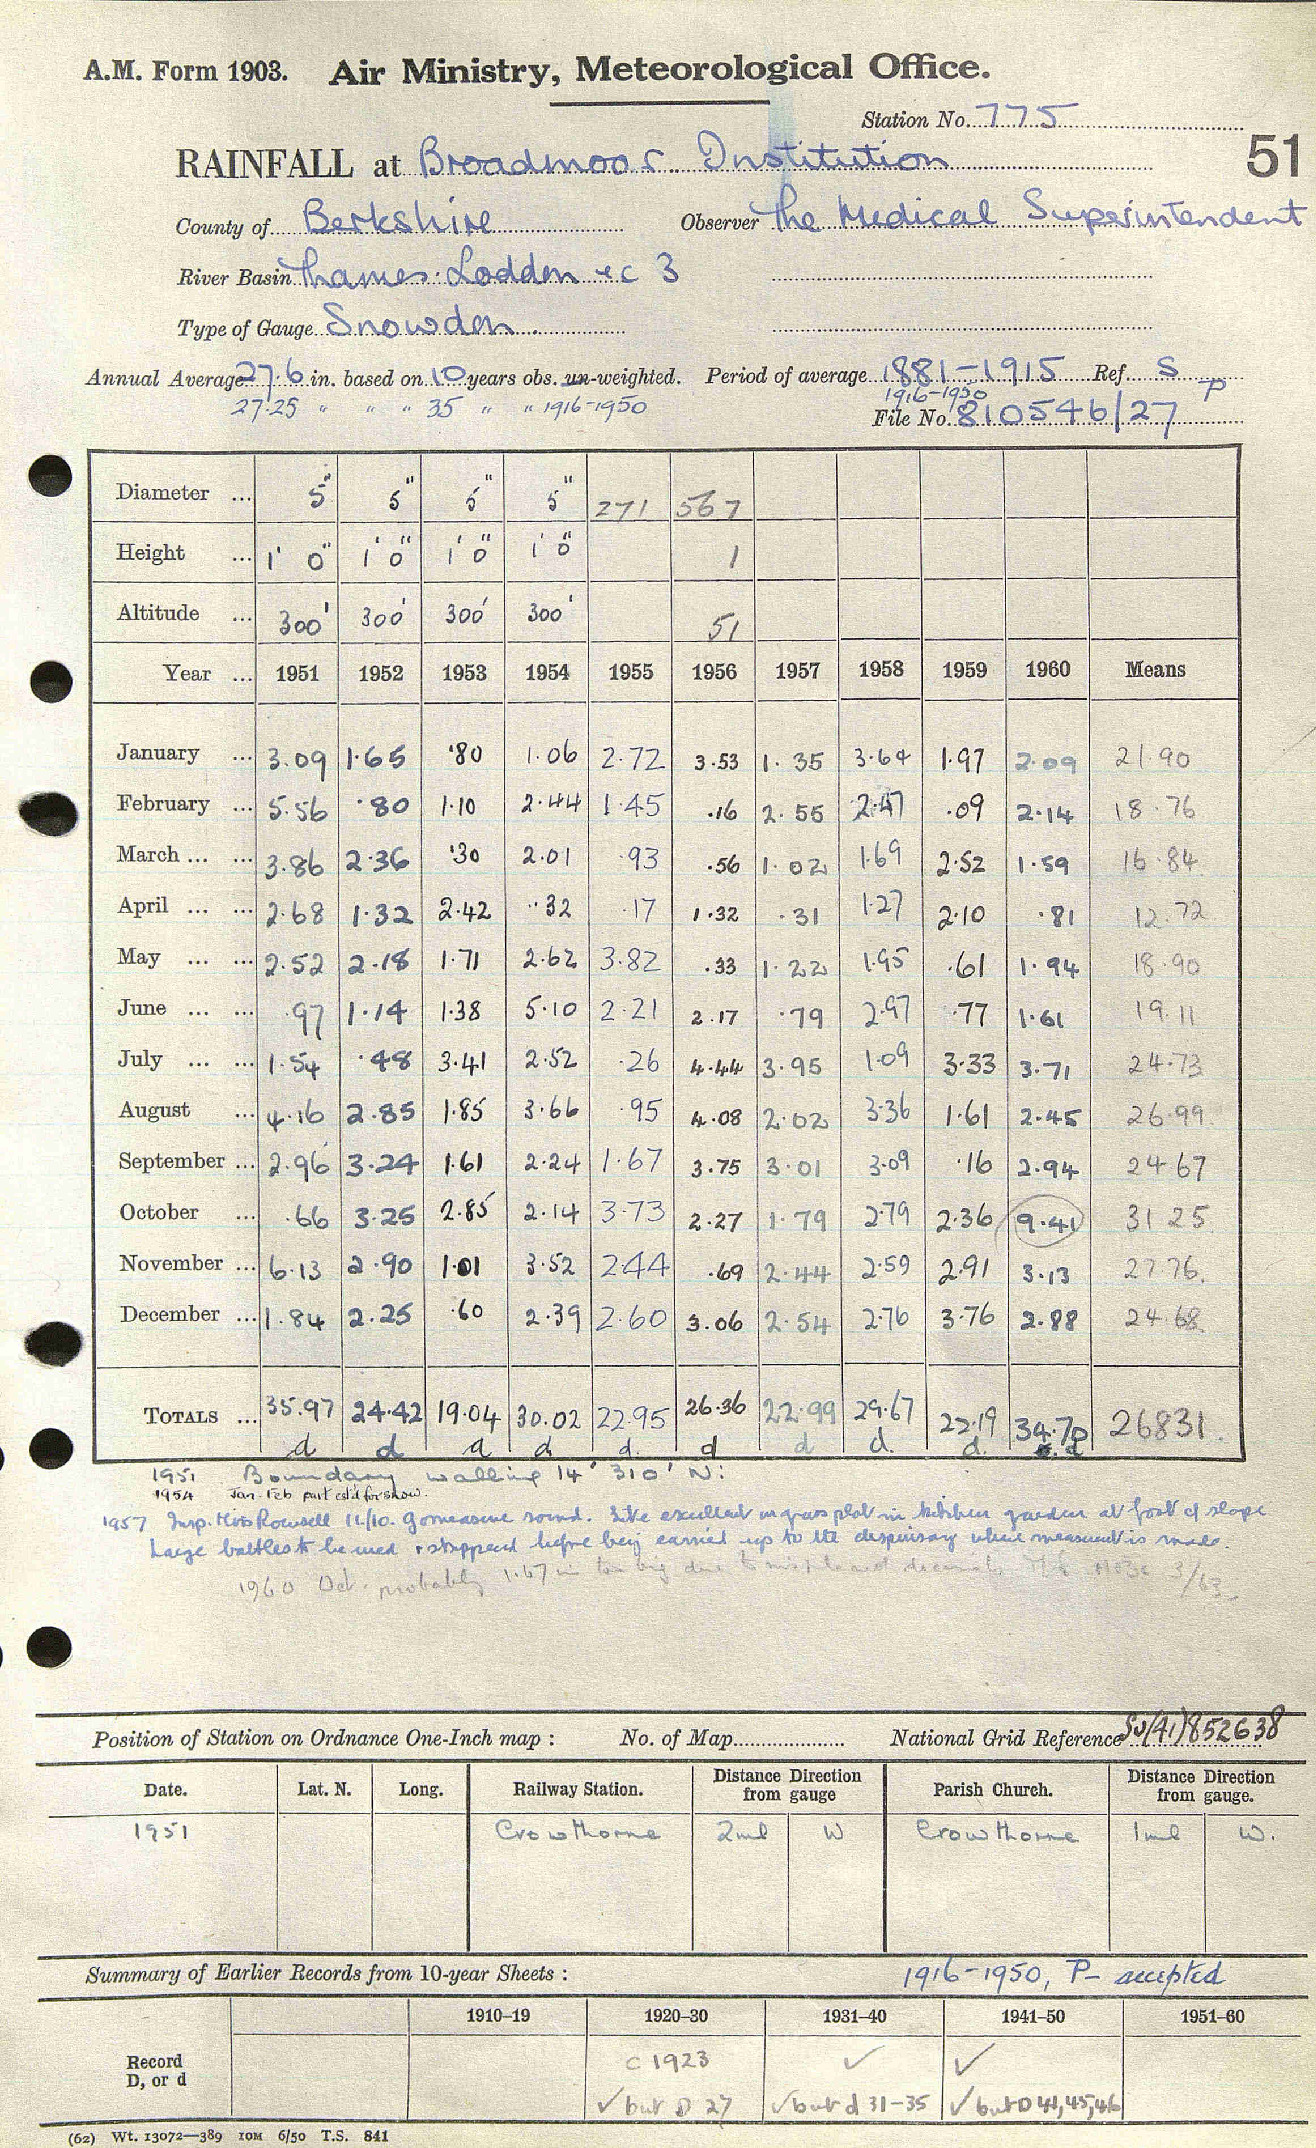 A.M. Form 1903. Air Ministry, Meteorological Office.
Station No. 775
51
RAINFALL at Broadmoor Institution
County of Berkshire Observer The Medical Superintendent
River Basin Thames: Loddon &c 3
Type of Gauge Snowdon
Annual Average 27.6 in. based on 10 years obs. un-weighted. Period of average 1881-1915 Ref. S
27.25 " " " 35 " " 1916-1950 1916-1950 P
File No. 810546/27
Diameter ... 5" 5" 5" 5" 271 567
Height ... 1' 0" 1' 0" 1' 0" 1' 0" 1
Altitude ... 300' 300' 300' 300' 51
Year ... 1951 1952 1953 1954 1955 1956 1957 1958 1959 1960 Means
January ... 3.09 1.65 .80 1.06 2.72 3.53 1.35 3.64 1.97 2.09 21.90
February ... 5.56 .80 1.10 2.44 1.45 .16 2.55 2.47 .09 2.14 18.76
March ... ... 3.86 2.36 .30 2.01 .93 .56 1.02 1.69 2.52 1.59 16.84
April ... ... 2.68 1.32 2.42 .32 .17 1.32 .31 1.27 2.10 .81 12.72
May ... ... 2.52 2.18 1.71 2.62 3.82 .33 1.22 1.95 .61 1.94 18.90
June ... ... .97 1.14 1.38 5.10 2.21 2.17 .79 2.97 .77 1.61 19.11
July ... ... 1.54 .48 3.41 2.52 .26 4.44 3.95 1.09 3.33 3.71 24.73
August ... 4.16 2.85 1.85 3.66 .95 4.08 2.02 3.36 1.61 2.45 26.99
September ... 2.96 3.24 1.61 2.24 1.67 3.75 3.01 3.09 .16 2.94 24.67
October ... .66 3.25 2.85 2.14 3.73 2.27 1.79 2.79 2.36 9.41 31.25
November ... 6.13 2.90 1.01 3.52 2.44 .69 2.44 2.59 2.91 3.13 27.76
December ... 1.84 2.25 .60 2.39 2.60 3.06 2.54 2.76 3.76 2.88 24.68
TOTALS ... 35.97 24.42 19.04 30.02 22.95 26.36 22.99 29.67 22.19 34.70 268.31
d d d d d. d d d. d. d
1951 Boundary walling 14' 310' N:
1954 Jan-Feb part est'd for snow.
1957 Insp. Miss Rowsell 11/10. Gomeasure round. Site excellent in grass plot in kitchen garden at foot of slope
Large bottles to be used & stoppered before being carried up to the dispensary where measurement is made.
1960 Oct. probably 1.67 in too big due to misplaced decimal. 3/63
Position of Station on Ordnance One-Inch map : No. of Map National Grid Reference SU(41)852638
Date. Lat. N. Long. Railway Station. Distance Direction from gauge Parish Church. Distance Direction from gauge.
1951 Crowthorne 2ml W Crowthorne 1ml W.
Summary of Earlier Records from 10-year Sheets : 1916-1950, P- accepted
1910-19 1920-30 1931-40 1941-50 1951-60
Record D, or d
c 1923 ✓ ✓
✓ but D 27 ✓ but d 31-35 ✓ but D 41,45,46
(62) Wt. 13072—389 10M 6/50 T.S. 841